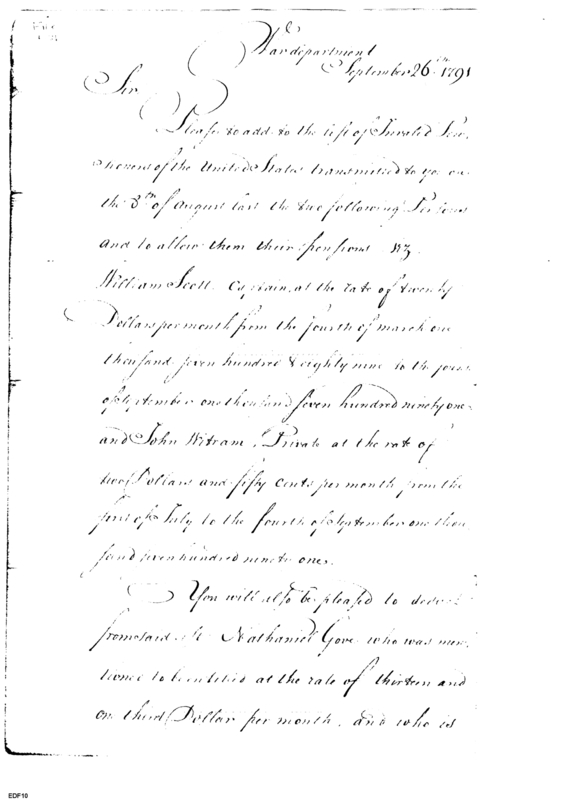 War department
September 26th 1791
Sir
Please to add to the list of Invalid Pen
sioners of the United States transmitted to you on
the 8th of August last the two following Persons
and to allow them their pensions viz
William Scott Captain, at the rate of twenty
Dollars per month from the fourth of march one
thousand seven hundred & eighty nine to the
of September one thousand seven hundred ninety one
and John Witram, Private at the rate of
two Dollars and fifty cents per month from the
first of July to the fourth of September one thou
sand seven hundred ninety one.
You will also be pleased to
from said list Nathaniel Gove who was men
tioned to be entitled at the rate of thirteen and
one third Dollar per month, and who is
EDF10